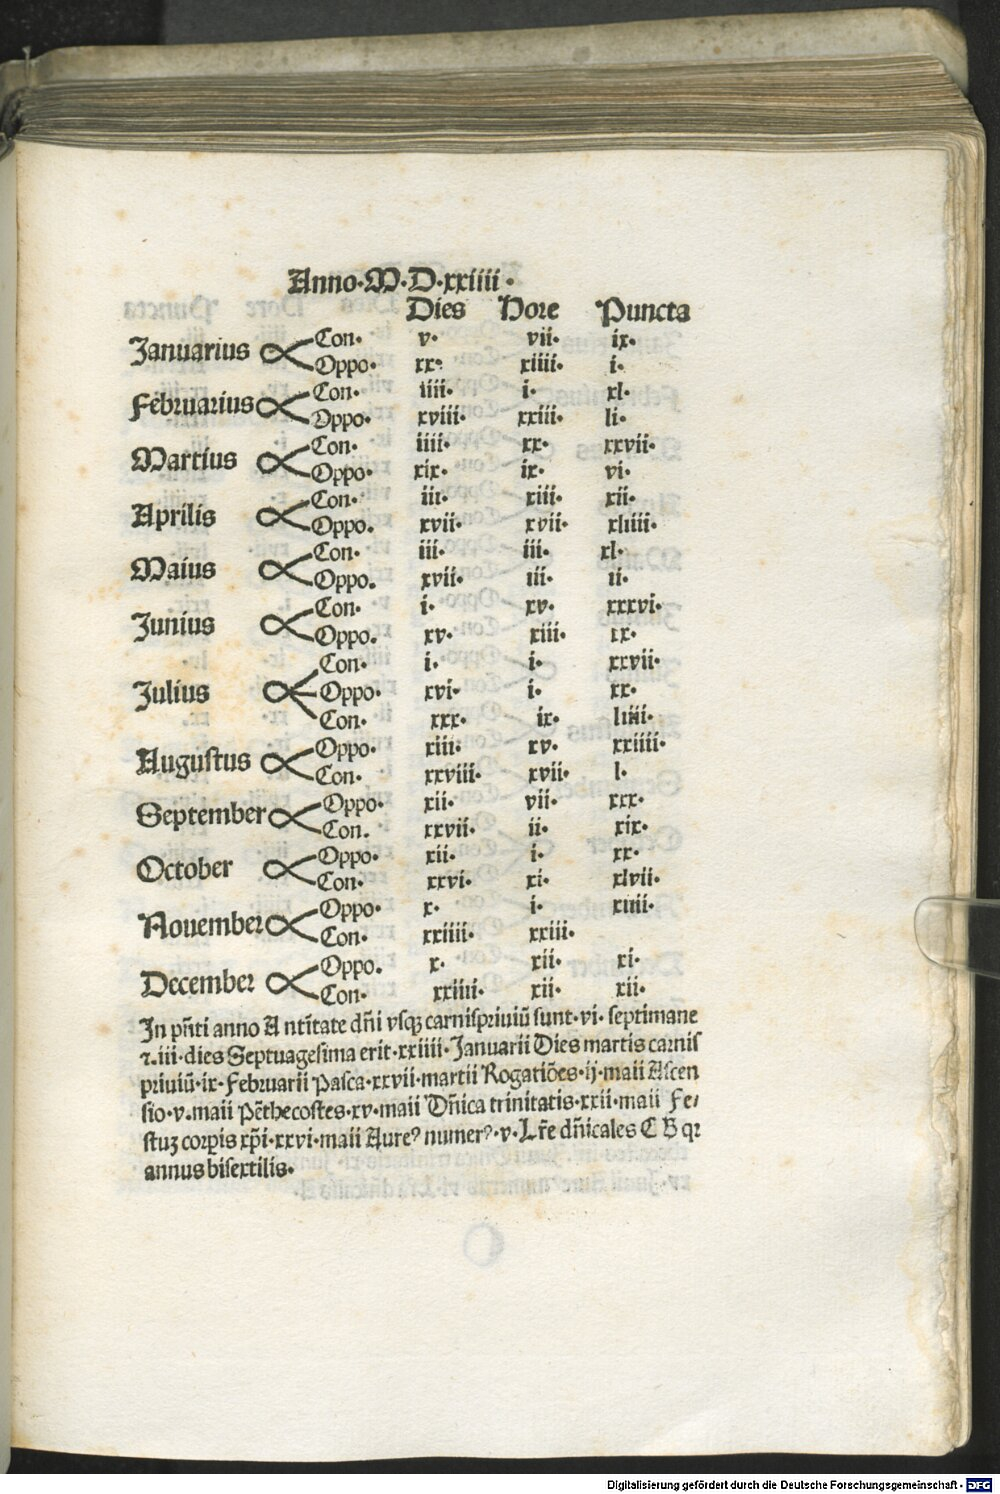 Anno·M·D·xxiiii·
Dies Hore Puncta
Januarius Con· v· vii· ix·
Oppo· xx· xiiii· i·
Februarius Con· iiii· i· xl·
Oppo· xviii· xxiii· li·
Martius Con· iiii· xx· xxvii·
Oppo· xix· ix· vi·
Aprilis Con· iii· xiii· xii·
Oppo. xvii· xvii· xliiii·
Maius Con· iii· iii· xl·
Oppo. xvii· iii· ii·
Junius Con· i· xv· xxxvi·
Oppo. xv· xiii· ix·
Julius Con· i· i· xxvii·
Oppo· xvi· i· xx·
Con· xxx· ix· liiii·
Augustus Oppo· xiii· xv· xxiiii·
Con· xxviii· xvii· l·
September Oppo· xii· vii· xxx·
Con. xxvii· ii· xix·
October Oppo· xii· i· xx·
Con· xxvi· xi· xlvii·
Nouember Oppo· x· i·
Con· xxiiii· xxiii·
December Oppo. x· xii· xi·
Con· xxiiii· xii· xii·
In pñti anno A ntĩtate dñi vsqꝫ carnispriuiũ sunt·vi· septimane
⁊·iii·dies Septuagesima erit·xxiiii·Januarii Dies martis carnis
priuiũ·ix·Februarii Pasca·xxvii·martii Rogatiões·ij·maii Ascen
sio·v·maii Pẽthecostes·xv·maii Dñica trinitatis·xxii·maii Fe/
stuꝫ corpis xp̃i·xxvi·maii Aureꝰ numerꝰ·v·Lr̃e dñicales C B qꝛ
annus bisextilis·
Digitalisierung gefördert durch die Deutsche Forschungsgemeinschaft - DFG